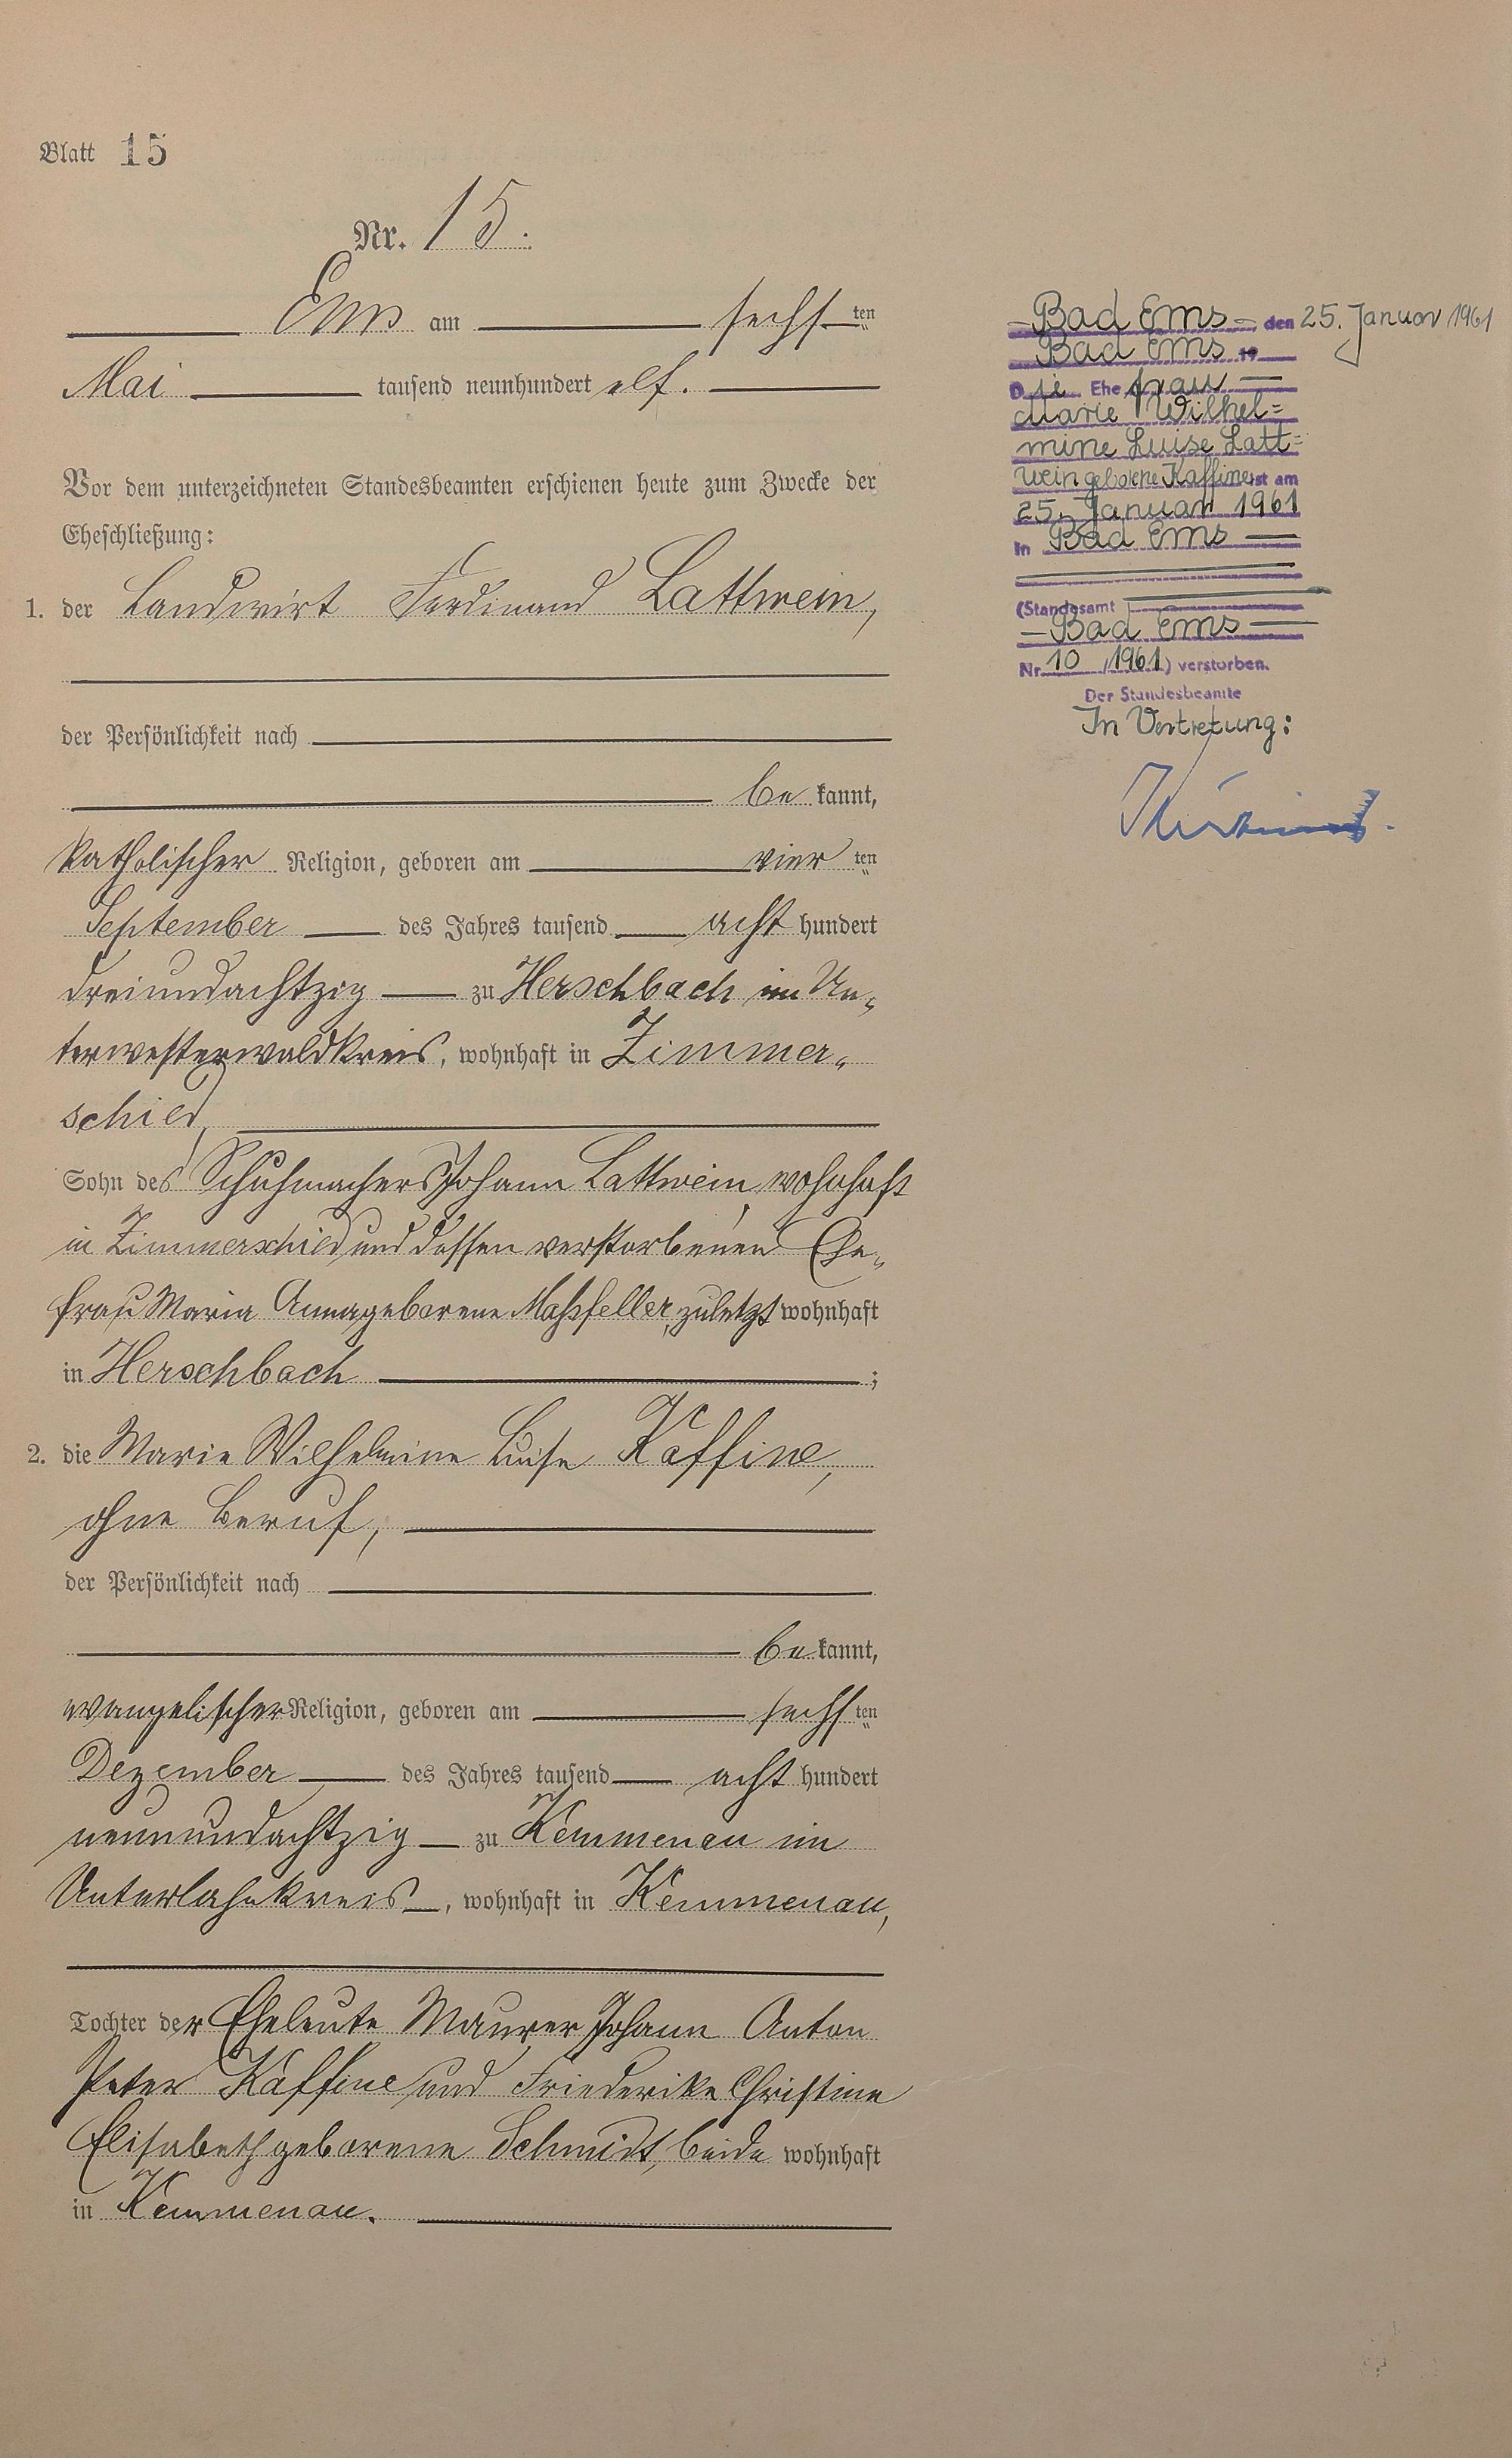 Blatt 15
Nr. 15.
Ems am sechsten
Mai tausend neunhundert elf.
Vor dem unterzeichneten Standesbeamten erschienen heute zum Zwecke der
Eheschließung:
1. der Landwirt Ferdinand Lattwein,
der Persönlichkeit nach
bekannt,
katholischer Religion, geboren am vierten
September des Jahres tausend acht hundert
dreiundachtzig zu Herschbach im Un-
terwesterwaldkreis, wohnhaft in Zimmer-
schied,
Sohn des Schuhmachers Johann Lattwein, wohnhaft
in Zimmerschied und dessen verstorbenen Ehe-
frau Maria Anna geborene Maßfeller, zuletzt wohnhaft
in Herschbach ;
2. die Marie Wilhelmine Luise Kaffine,
ohne Beruf,
der Persönlichkeit nach
bekannt,
evangelischer Religion, geboren am sechsten
Dezember des Jahres tausend acht hundert
neunundachtzig zu Kemmenau im
Unterlahnkreis, wohnhaft in Kemmenau,
Tochter der Eheleute Maurer Johann Anton
Peter Kaffine und Friederike Christine
Elisabeth geborene Schmidt, beide wohnhaft
in Kemmenau.
Bad Ems, den 25. Januar 1961
Bad Ems 19
Die Ehefrau
Marie Wilhel=
mine Luise Latt=
wein geborene Kaffine ist am
25. Januar 1961
in Bad Ems
(Standesamt
Bad Ems
Nr. 10 / 1961) verstorben.
Der Standesbeamte
In Vertretung: